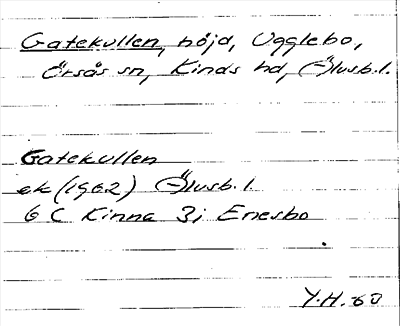 Gatekullen, höjd, Ugglebo,
Örsås sn, Kinds hd, Älvsb.l.
Gatekullen
ek (1962) Älvsb.l.
6 C Kinna 3i Enesbo
Y.H.-60